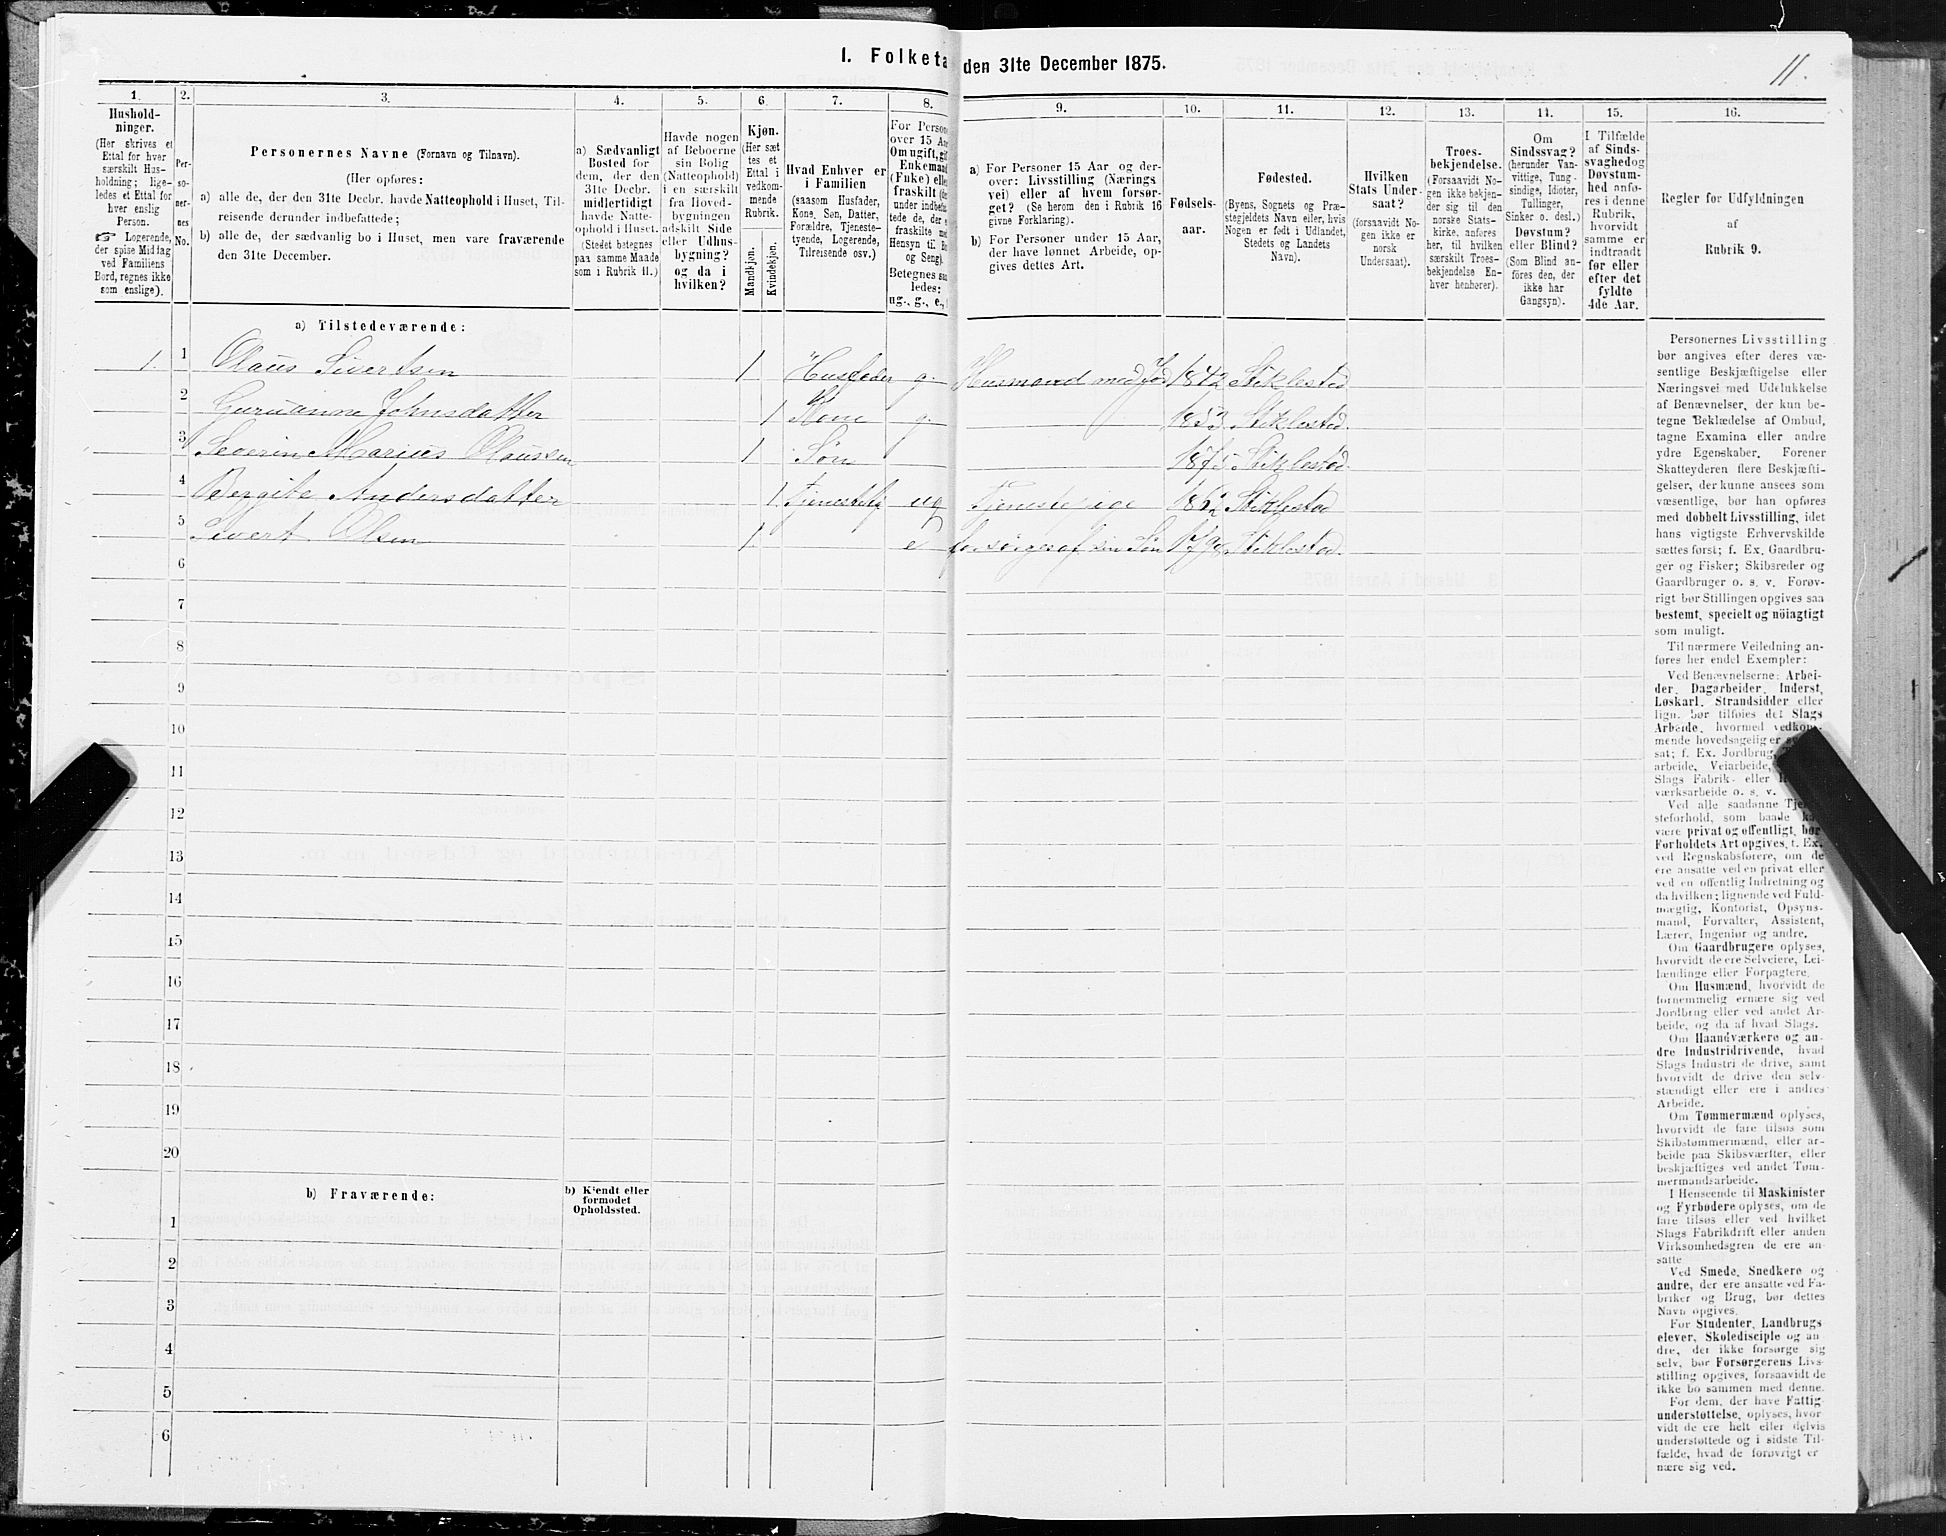 I. Folketa den 31te December 1875.
11.
1.
Hushold-
ninger.
(Her skrives et
Ettal for hver
særskilt Hus-
holdning; lige-
ledes et Ettal for
hver enslig
Person.
☞ Logerende,
der spise Middag
ved Familiens
Bord, regnes ikke
som enslige).
2.
Per-
so-
ner-
nes
No.
3.
Personernes Navne (Fornavn og Tilnavn).
(Her opføres:
a) alle de, der den 31te Decbr. havde Natteophold i Huset, Til-
reisende derunder indbefattede;
b) alle de, der sædvanlig bo i Huset, men vare fraværende
den 31te December.
4.
a) Sædvanligt
Bosted for
dem, der den
31te Decbr.
midlertidigt
havde Natte-
ophold i Huset.
(Stedet betegnes
paa samme Maade
som i Rubrik 11.)
5.
Havde nogen
af Beboerne
sin Bolig
(Natteophold)
i en særskilt
fra Hoved-
bygningen
adskilt Side
eller Udhus-
bygning?
og da i
hvilken?
6.
Kjøn.
(Her sæt
tes et
Ettal i
vedkom-
mende
Rubrik.
Mandkjøn.
Kvindekjøn.
7.
Hvad Enhver er
i Familien
(saasom Husfader,
Kone, Søn, Datter,
Forældre, Tjeneste-
tyende, Logerende,
Tilreisende osv.)
8.
For Persone
over 15 Aa
Om ugift, gif
Enkemand
(Fuke) elle
fraskilt (de
under indbefa
tede de, der e
fraskilte m
Hensyn til Bo
og Seng).
Betegnes saa
ledes:
ug., g., e.,
9.
a) For Personer 15 Aar og der-
over: Livsstilling (Nærings
vei) eller af hvem forsør-
get? (Se herom den i Rubrik 16
givne Forklaring).
b) For Personer under 15 Aar,
der have lønnet Arbeide, op-
gives dettes Art.
10.
Fødsels-
aar.
11.
Fødested.
(Byens, Sognets og Præ-
stegjeldets Navn eller, hvis
Nogen er født i Udlandet,
Stedets og Landets
Navn).
12.
Hvilken
Stats Under-
saat?
(forsaavidt No-
gen ikke er
norsk
Undersaat).
13.
Troes-
bekjendelse.
(Forsaavidt No-
gen ikke bekjen-
der sig til den
norske Stats-
kirke, anføres
her, til hvilken
særskilt Troes-
bekjendelse En-
hver henhører).
14.
Om
Sindssvag?
(herunder Van-
vittige, Tung-
sindige, Idioter,
Tullinger,
Sinker o. desl.)
Døvstum?
eller Blind?
(Som Blind an-
føres den, der
ikke har
Gangsyn).
15.
I Tilfælde
af Sinds-
svaghedog
Døvstum-
hed anfø-
res i denne
Rubrik,
hvorvidt
samme er
indtraadt
før eller
efter det
fyldte
4de Aar.
16.
Regler for Udfyldningen
af
Rubrik 9.
a) Tilstedeværende:
1. 1 Olaus Sivertsen 1 Husfader g. Husmand med Jord 1842 Stiklestad
2 Guruanna Johnsdatter 1 Kone g. 1853 Stiklestad.
3 Severin Marius Olaussen 1 Søn 1875 Stiklestad.
4 Bergite Andersdatter 1 ug Tjenestepige Stiklestad
5 Sivert Olsen 1. e forsørges af sin Søn Stiklestad.
6
7
8
9
10
11
12
13
14
15
16
17
18
19
20
b) Fraværende:
b) Kjendt eller
formodet
Opholdssted.
1
2
3
4
5
6
Personernes Livsstilling
bør angives efter deres væ-
sentlige Beskjæftigelse eller
Næringsvei med Udelukkelse
af Benævnelser, der kun be-
tegne Beklædelse af Ombud,
tagne Examina eller andre
ydre Egenskaber. Forener
Skatteyderen flere Beskjæfti-
gelser, der kunne ansees som
væsentlige, bør han opføres
med dobbelt Livsstilling, idet
hans vigtigste Erhvervskilde
sættes først; f. Ex. Gaardbru-
ger og Fisker; Skibsreder og
Gaardbruger o. s. v. Forøv-
rigt bør Stillingen opgives saa
bestemt, specielt og nöiagtigt
som muligt.
Til nærmere Veiledning an-
føres her endel Exempler:
Ved Benævnelserne: Arbei-
der, Dagarbeider, Inderst,
Løskarl, Strandsidder eller
lign. bør tilføies det Slags
Arbeide, hvormed vedkom-
mende hovedsagelig er
sat; f. Ex. Jordbrug,
arbeide, Veiarbeide,
Slags Fabrik- eller
værksarbeide o. s. v.
Ved alle saadanne
steforhold, som baade
være privat og offentligt, bør
Forholdets Art opgives, f. Ex.
ved Regnskabsførere, om de
ere ansatte ved en privat eller
ved en offentlig Indretning og
da hvilken; lignende ved Fuld-
mægtig, Kontorist, Opsyns-
mand, Forvalter, Assistent,
Lærer, Ingeniør og andre.
Om Gaardbrugere oplyses,
hvorvidt de ere Selveiere, Lei-
lændinge eller Forpagtere.
Om Husmænd, hvorvidt de
fornemmelig ernære sig ved
Jordbrug eller ved andet Ar-
beide, og da af hvad Slags.
Om Haandværkere og an-
dre Industridrivende, hvad
Slags Industri de drive, samt
hvorvidt de drive den selv-
stændigt eller ere i andres
Arbeide.
Om Tømmermænd oplyses,
hvorvidt de fare tilsøs som
Skibstømmermænd, eller ar-
beide paa Skibsværfter, eller
beskjæftiges ved andet Tøm-
mermandsarbeide.
I Henseende til Maskinister
og Fyrbødere oplyses, om de
fare tilsøs eller ved hvilket
Slags Fabrikdrift eller anden
Virksomhedsgren de ere an-
satte
Ved Smede, Snedkere og
andre, der ere ansatte ved Fa-
briker og Brug, bør dettes
Navn opgives.
For Studenter, Landbrugs
elever, Skoledisciple og an
dre, der ikke forsørge sig
selv, bør Forsørgerens Livs-
stilling opgives, forsaavidt de
ikke bo sammen med denne.
For dem, der have Fattig
understøttelse, oplyses, hvor-
vidt de ere helt eller delvis
understøttede og i sidste Til-
fælde, hvad de forøvrigt er
nære sig ved.